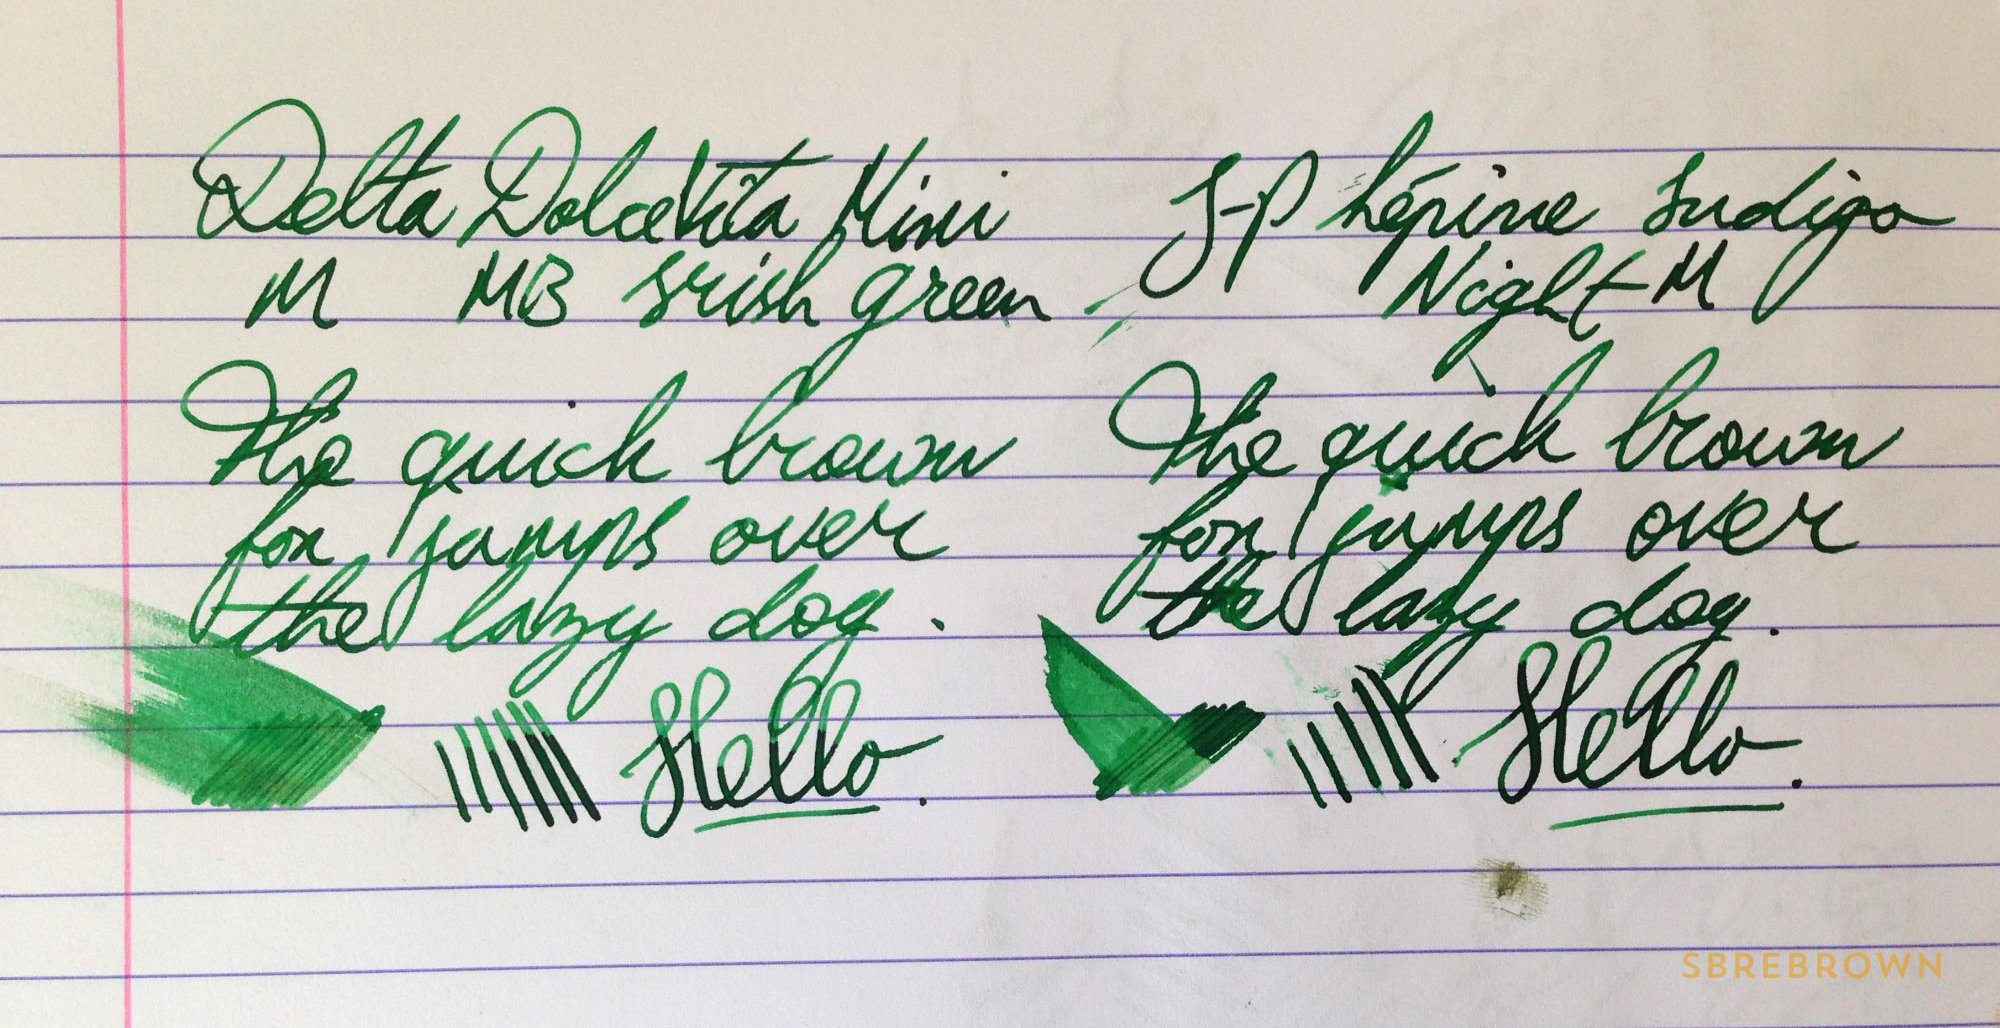 Delta DolceVita Mini
M MB Irish Green
The quick brown
fox jumps over
the lazy dog.
Hello.
J-P Lépine Indigo
Night M
The quick brown
fox jumps over
the lazy dog.
Hello.
SBREBROWN